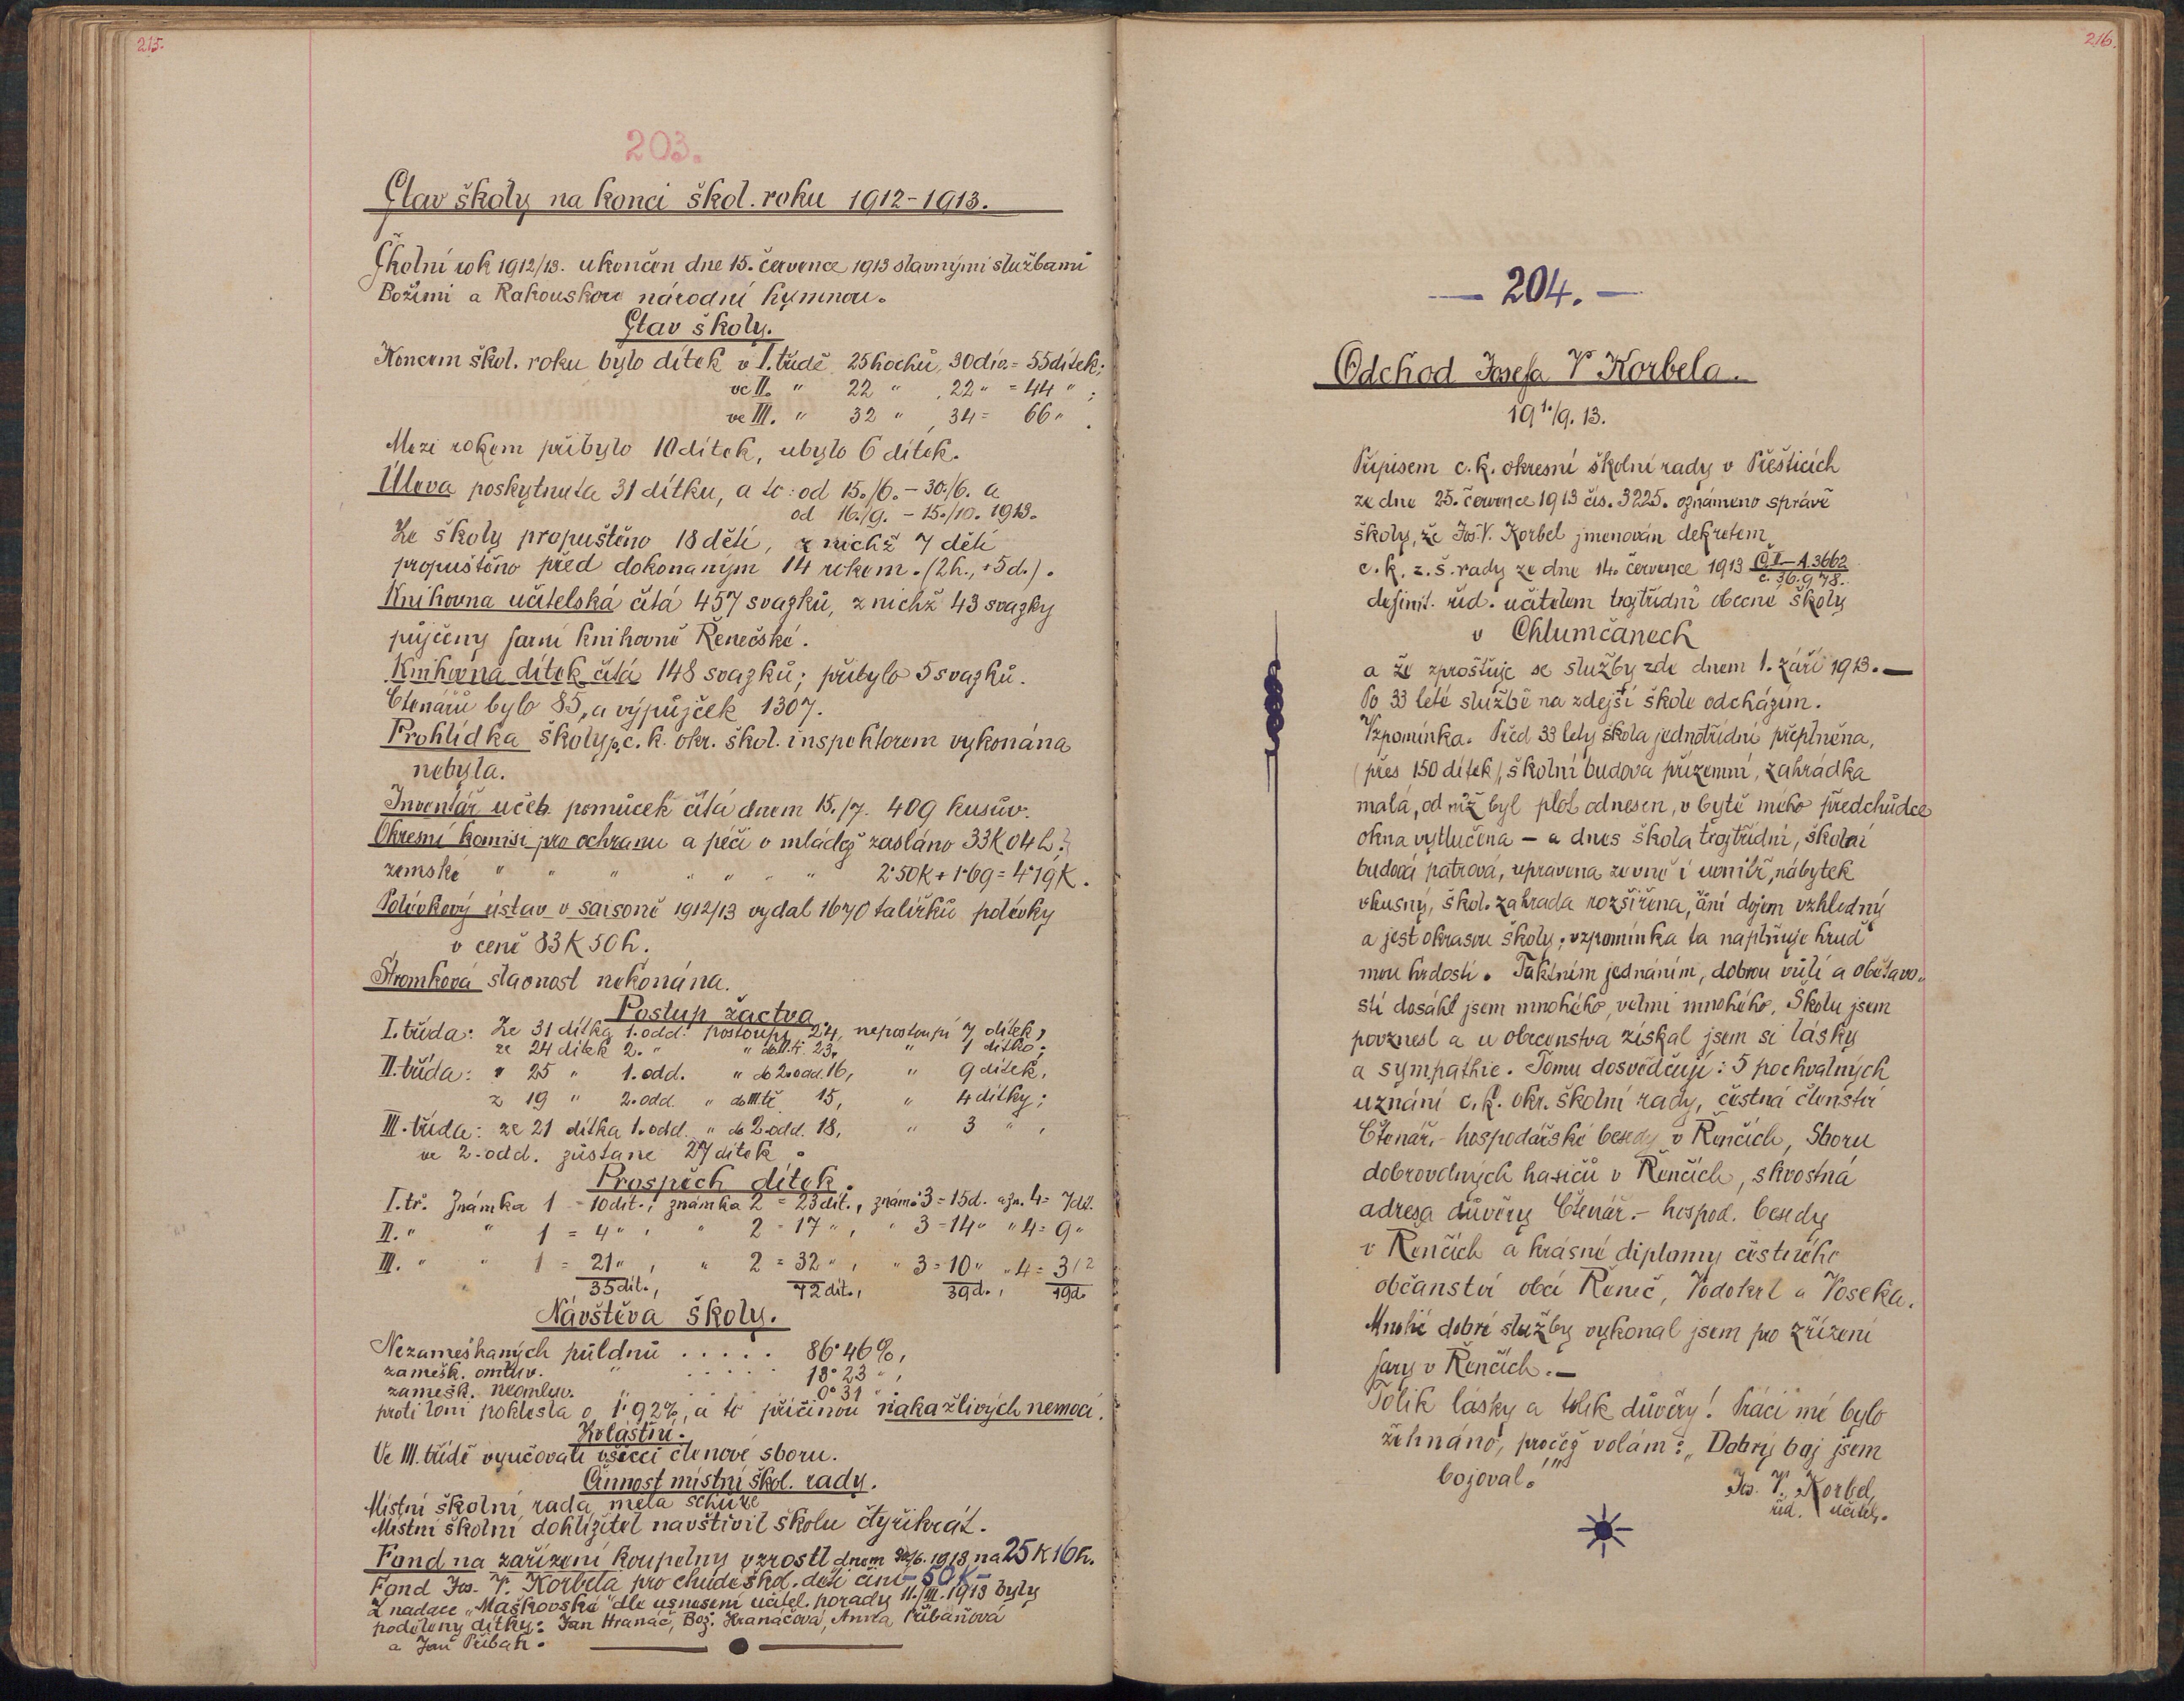 215.
203.
Stav školy na konci škol. roku 1912-1913.
Školní rok 1912/13. ukončen dne 15. července 1913 slavnými službami
Božími a Rakouskou národní hymnou.
Stav školy.
Koncem škol. roku bylo dítek v I. třídě 25 hochů, 30 div. = 55 dítek;
ve II. " 22 " , 22 " = 44 " ;
ve III. " 32 " , 34 = 66 " .
Mezi rokem přibylo 10 dítek, ubylo 6 dítek.
Úleva poskytnuta 31 dítku, a to: od 15./6. - 30./6. a
od 16./9. - 15./10. 1913.
Ze školy propuštěno 18 dětí, z nichž 7 dětí
propuštěno před dokonaným 14 rokem. (2h., +5d.).
Knihovna učitelská čítá 457 svazků, z nichž 43 svazky
půjčeny farní knihovně Řenečské.
Knihovna dítek čítá 148 svazků; přibylo 5 svazků.
Čtenářů bylo 85, a výpůjček 1307.
Prohlídka školy p. c. k. okr. škol. inspektorem vykonána
nebyla.
Inventář učeb. pomůcek čítá dnem 15./7. 409 kusův.
Okresní komisi pro ochranu a péči o mládež zasláno 33K 04h.;
zemské " " " " " " " 2·50K + 1·69 = 4·19K.
Polévkový ústav v saisoně 1912/13 vydal 1670 talířků polévky
v ceně 83K 50h.
Stromková slavnost nekonána.
Postup žactva
I. třída: Ze 31 dítka 1. odd. postoupí 24, nepostoupí 7 dítek,
ze 24 dítek 2. " " do II. tř. 23, " 1 dítko;
II. třída: " 25 " 1. odd. " do 2. odd. 16, " 9 dítek,
z 19 " 2. odd. " do III. tř. 15, " 4 dítky;
III. třída: ze 21 dítka 1. odd. " do 2. odd. 18, " 3 " ,
ve 2. odd. zůstane 27 dítek.
Prospěch dítek.
I. tř. Známka 1 - 10 dít.; známka 2 = 23 dít., znám. 3 = 15d. a zn. 4 = 7 dít.
II. " " 1 = 4 " , " 2 = 17 " , " 3 = 14 " " 4 = 9 "
III. " " 1 = 21 " , " 2 = 32 " , " 3 = 10 " " 4 = 3
35 dít., 72 dít., 39d., 19d.
Návštěva školy.
Nezameškaných půldnů ..... 86·46%,
zamešk. omluv. " ..... 13·23 " ,
zamešk. neomluv. " 0·31 "
proti loni poklesla o 1·92%, a to příčinou nakažlivých nemocí.
Zvláštní.
Ve III. třídě vyučovali všicci členové sboru.
Činnost místní škol. rady.
Místní školní rada měla schůze
Místní školní dohlížitel navštívil školu čtyřikrát.
Fond na zařízení koupelny vzrostl dnem 30/6. 1913 na 25K 16h.
Fond Jos. V. Korbela pro chudé škol. děti činí - 50K -
Z nadace „Maškovské" dle usnesení učitel. porady 11./III. 1913 byly
poděleny dítky: Jan Hranáč, Bož. Hranáčová, Anna Přibáňová
a Jan Přibáň.
216.
— 204. —
Odchod Josefa V Korbela.
19 1./9. 13.
Přípisem c. k. okresní školní rady v Přešticích
ze dne 25. července 1913 čís. 3225. oznámeno správě
školy, že Jos. V. Korbel jmenován dekretem
c. k. z. š. rady ze dne 14. července 1913 Č. I-A.3662
č. 36.978.
definit. říd. učitelem trojtřídní obecné školy
v Chlumčanech
a že zprošťuje se služby zde dnem 1. září 1913. —
Po 33 leté službě na zdejší škole odcházím.
Vzpomínka. Před 33 lety škola jednotřídní přeplněna,
(přes 150 dítek), školní budova přízemní, zahrádka
malá, od níž byl plot odnesen, v bytě mého předchůdce
okna vytlučena - a dnes škola trojtřídní, školní
budova patrová, upravena zevně i uvnitř, nábytek
vkusný, škol. zahrada rozšířena, činí dojem vzhledný
a jest okrasou školy; vzpomínka ta naplňuje hruď
mou hrdostí. Taktním jednáním, dobrou vůlí a obětavo-
stí dosáhl jsem mnohého, velmi mnohého. Školu jsem
povznesl a u obecenstva získal jsem si lásky
a sympathie. Tomu dosvědčují: 5 pochvalných
uznání c. k. okr. školní rady, čestná členství
Čtenář.- hospodářské besedy v Řenčích, Sboru
dobrovolných hasičů v Řenčích, skvostná
adresa důvěry Čtenář.- hospod. besedy
v Řenčích a krásné diplomy čestného
občanství obcí Řeneč, Vodokrt a Voseka.
Mnohé dobré služby vykonal jsem pro zřízení
fary v Řenčích. —
Tolik lásky a tolik důvěry! Práci mé bylo
žehnáno, pročež volám: „Dobrý boj jsem
bojoval."
Jos. V. Korbel,
říd. učitel.